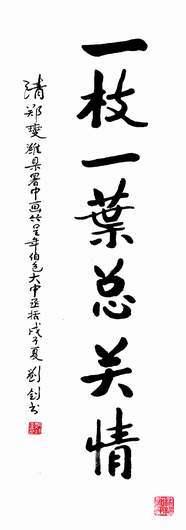 一枝一葉总关情
清郑燮潍县署中画竹呈年伯包大中丞括戊子夏 刘剑书